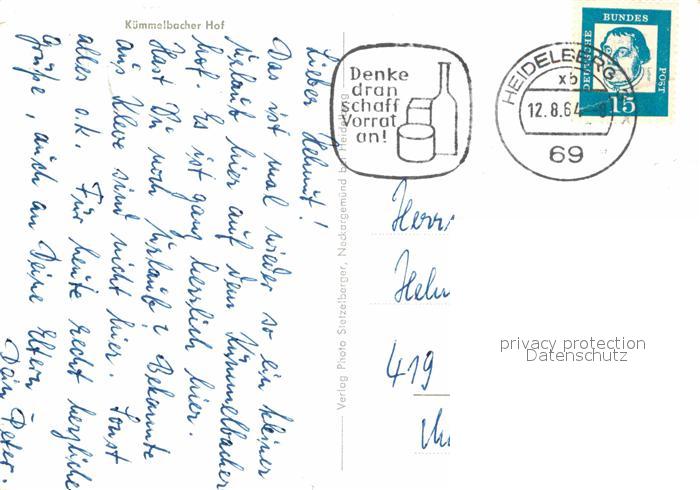 Kümmelbacher Hof
Lieber Helmut!
Das ist mal wieder so ein kleiner
Urlaub hier auf dem Kümmelbacher
hof. Es ist ganz herrlich hier.
Hast Du noch Urlaub? Bekannte
aus Kleve sind nicht hier. Sonst
alles o.k. Für heute recht herzliche
Grüße, auch an Deine Eltern
Dein Peter.
Verlag Photo Stetzelberger, Neckargemünd bei Heidelberg
Denke
dran
schaff
Vorrat
an!
HEIDELBERG
xb
12.8.64
69
DEUTSCHE
BUNDES
POST
15
Herrn
Helm
419
privacy protection
Datenschutz